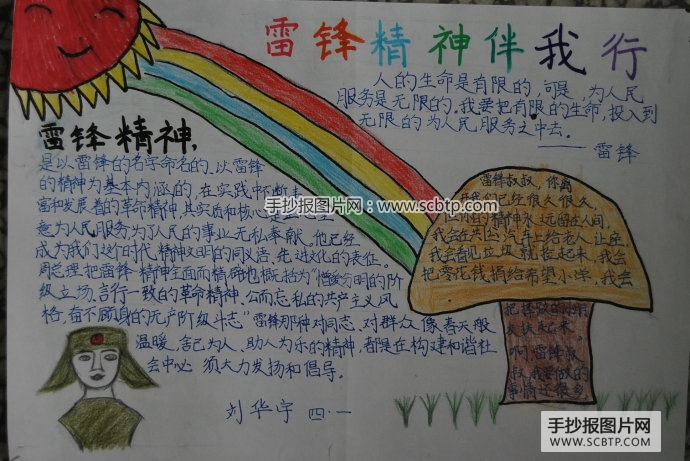 雷锋精神伴我行
人的生命是有限的,可是,为人民
服务是无限的,我要把有限的生命,投入到
无限的为人民服务之中去。
——雷锋
雷锋精神,
是以雷锋的名字命名的、以雷锋
的精神为基本内涵的,在实践中不断丰
富和发展着的革命精神,其实质和核心
为人民服务,为了人民的事业无私奉献。他已经
成为我们这个时代精神文明的同义语、先进文化的表征。
周总理把雷锋精神全面而精辟地概括为“憎爱分明的阶
级立场、言行一致的革命精神、公而忘私的共产主义风
格、奋不顾身的无产阶级斗志”雷锋那种对同志、对群众像春天般
温暖,舍己为人、助人为乐的精神,都是在构建和谐社
会中必须大力发扬和倡导。
刘华宇 四·一
雷锋叔叔,你离
开我们已经很久很久,
你的精神永远留在人间,
我会在共公汽车上给老人让座,
我会看见垃圾就捡起来,我会
把零花钱捐给希望小学,我会
把摔跤的小朋
友扶起来。
啊!雷锋叔
叔,我要做的
事情还很多
手抄报图片网:www.scbtp.com
手抄报图片网
WWW.SCBTP.COM